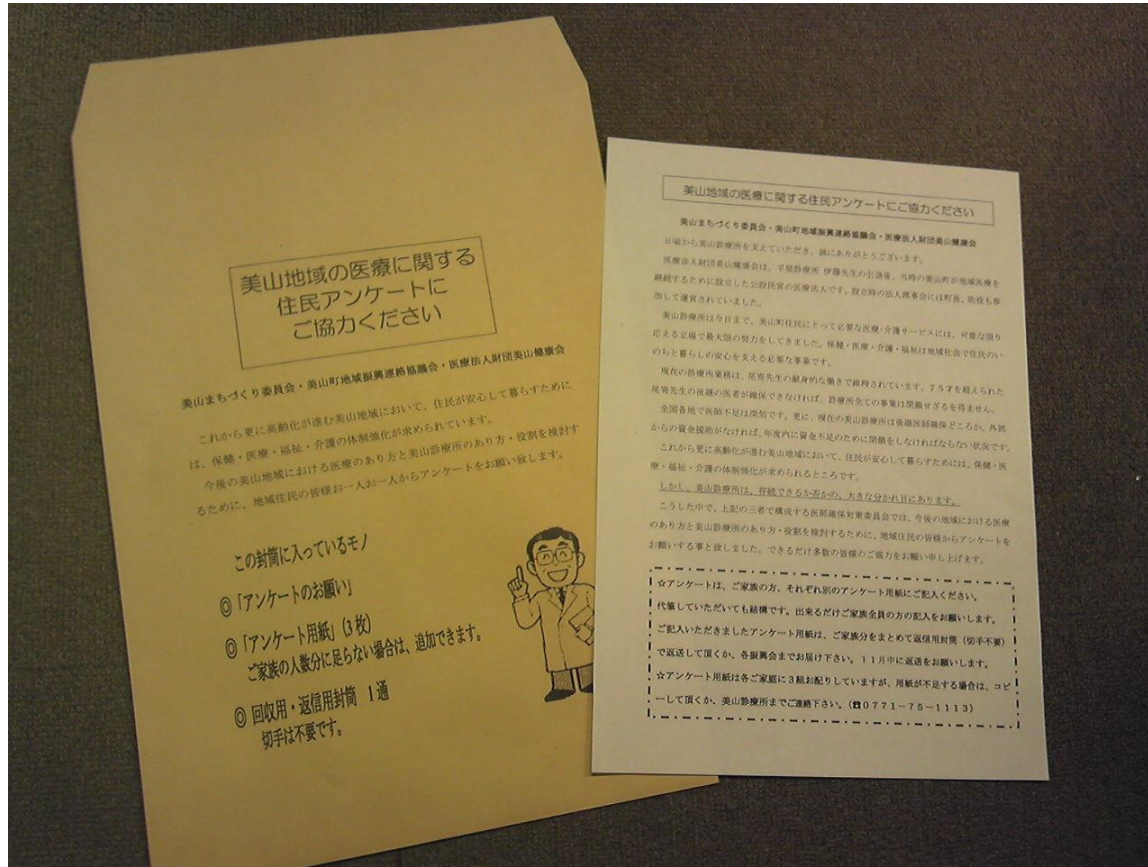 美山地域の医療に関する
住民アンケートに
ご協力ください
美山まちづくり委員会・美山町地域振興連絡協議会・医療法人財団美山健康会
これから更に高齢化が進む美山地域において、住民が安心して暮らすために
は、保健・医療・福祉・介護の体制強化が求められています。
今後の美山地域における医療のあり方と美山診療所のあり方・役割を検討す
るために、地域住民の皆様お一人お一人からアンケートをお願い致します。
この封筒に入っているモノ
◎「アンケートのお願い」
◎「アンケート用紙」(3枚)
ご家族の人数分に足らない場合は、追加できます。
◎ 回収用・返信用封筒 1通
切手は不要です。
美山地域の医療に関する住民アンケートにご協力ください
美山まちづくり委員会・美山町地域振興連絡協議会・医療法人財団美山健康会
日頃から美山診療所を支えていただき、誠にありがとうございます。
医療法人財団美山健康会は、平屋診療所 伊藤先生の引退後、当時の美山町が地域医療を
継続するために設立した公設民営の医療法人です。設立時の法人理事会には町長、助役も参
加して運営されていました。
美山診療所は今日まで、美山町住民にとって必要な医療・介護サービスには、可能な限り
応える立場で最大限の努力をしてきました。保健・医療・介護・福祉は地域社会で住民のい
のちと暮らしの安心を支える必要な事業です。
現在の診療所業務は、尾嵜先生の献身的な働きで維持されています。75才を超えられた
尾嵜先生の後継の医者が確保できなければ、診療所全ての事業は閉鎖せざるを得ません。
全国各地で医師不足は深刻です。更に、現在の美山診療所は後継医師確保どころか、外部
からの資金援助がなければ、年度内に資金不足のために閉鎖をしなければならない状況です。
これから更に高齢化が進む美山地域において、住民が安心して暮らすためには、保健・医
療・福祉・介護の体制強化が求められるところです。
しかし、美山診療所は、存続できるか否かの、大きな分かれ目にあります。
こうした中で、上記の三者で構成する医師確保対策委員会では、今後の地域における医療
のあり方と美山診療所のあり方・役割を検討するために、地域住民の皆様からアンケートを
お願いする事と致しました。できるだけ多数の皆様のご協力をお願い申し上げます。
☆アンケートは、ご家族の方、それぞれ別のアンケート用紙にご記入ください。
代筆していただいても結構です。出来るだけご家族全員の方の記入をお願いします。
ご記入いただきましたアンケート用紙は、ご家族分をまとめて返信用封筒(切手不要)
で返送して頂くか、各振興会までお届け下さい。11月中に返送をお願いします。
☆アンケート用紙は各ご家庭に3組お配りしていますが、用紙が不足する場合は、コピ
ーして頂くか、美山診療所までご連絡下さい。(☎0771-75-1113)